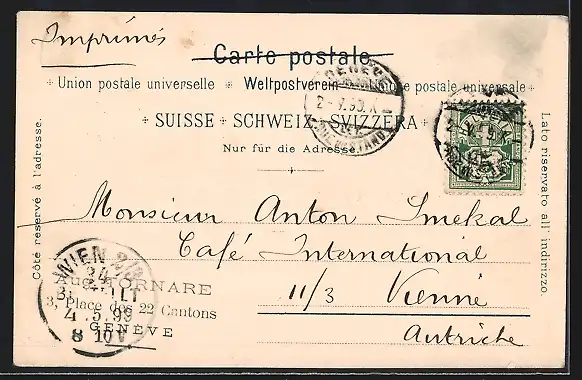 Imprimés
Carte postale.
Union postale universelle Weltpostverein Unione postale universale
SUISSE SCHWEIZ SVIZZERA
Nur für die Adresse.
Côte réservé à l'adresse.
Lato riservato all' indirizzo.
GENÈVE
HELVETIA
Monsieur Anton Smekal
Café International
11/3 Vienne
Autriche
WIEN
BESTELLT
4.5.99
8 10V
Aug. TORNARE
3, Place des 22 Cantons
GENÈVE